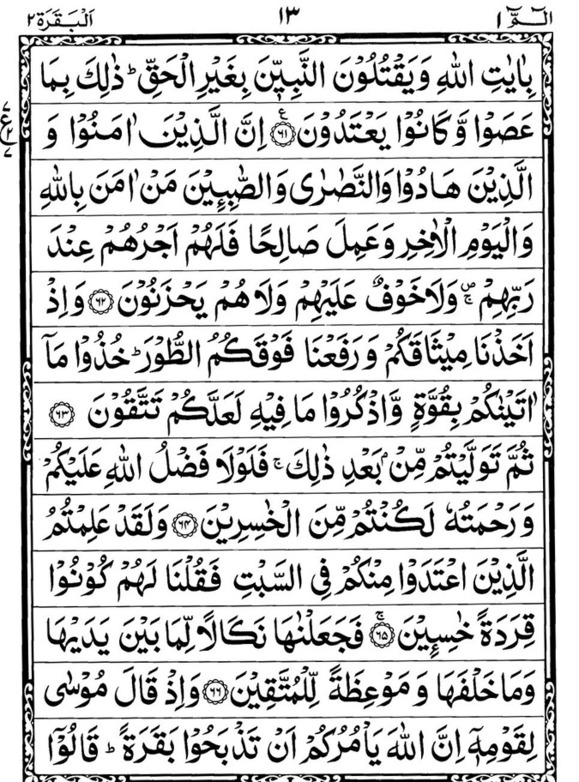 الٓمّٓ ١ ١٣ اَلْبَقَرَة ٢
بِاٰيٰتِ اللّٰهِ وَيَقْتُلُوْنَ النَّبِيّٖنَ بِغَيْرِ الْحَقِّ ؕ ذٰلِكَ بِمَا
عَصَوْا وَّكَانُوْا يَعْتَدُوْنَ ﴿٦١﴾ اِنَّ الَّذِيْنَ اٰمَنُوْا وَ
الَّذِيْنَ هَادُوْا وَالنَّصٰرٰى وَالصّٰبِــِٕيْنَ مَنْ اٰمَنَ بِاللّٰهِ
وَالْيَوْمِ الْاٰخِرِ وَعَمِلَ صَالِحًا فَلَهُمْ اَجْرُهُمْ عِنْدَ
رَبِّهِمْ ۪ۚ وَلَا خَوْفٌ عَلَيْهِمْ وَلَا هُمْ يَحْزَنُوْنَ ﴿٦٢﴾ وَاِذْ
اَخَذْنَا مِيْثَاقَكُمْ وَرَفَعْنَا فَوْقَكُمُ الطُّوْرَ ؕ خُذُوْا مَاۤ
اٰتَيْنٰكُمْ بِقُوَّةٍ وَّاذْكُرُوْا مَا فِيْهِ لَعَلَّكُمْ تَتَّقُوْنَ ﴿٦٣﴾
ثُمَّ تَوَلَّيْتُمْ مِّنْۢ بَعْدِ ذٰلِكَ ۚ فَلَوْلَا فَضْلُ اللّٰهِ عَلَيْكُمْ
وَرَحْمَتُهٗ لَكُنْتُمْ مِّنَ الْخٰسِرِيْنَ ﴿٦٤﴾ وَلَقَدْ عَلِمْتُمُ
الَّذِيْنَ اعْتَدَوْا مِنْكُمْ فِى السَّبْتِ فَقُلْنَا لَهُمْ كُوْنُوْا
قِرَدَةً خٰسِـِٕيْنَ ۚ﴿٦٥﴾ فَجَعَلْنٰهَا نَكَالًا لِّمَا بَيْنَ يَدَيْهَا
وَمَا خَلْفَهَا وَمَوْعِظَةً لِّلْمُتَّقِيْنَ ﴿٦٦﴾ وَاِذْ قَالَ مُوْسٰى
لِقَوْمِهٖۤ اِنَّ اللّٰهَ يَاْمُرُكُمْ اَنْ تَذْبَحُوْا بَقَرَةً ؕ قَالُوْۤا